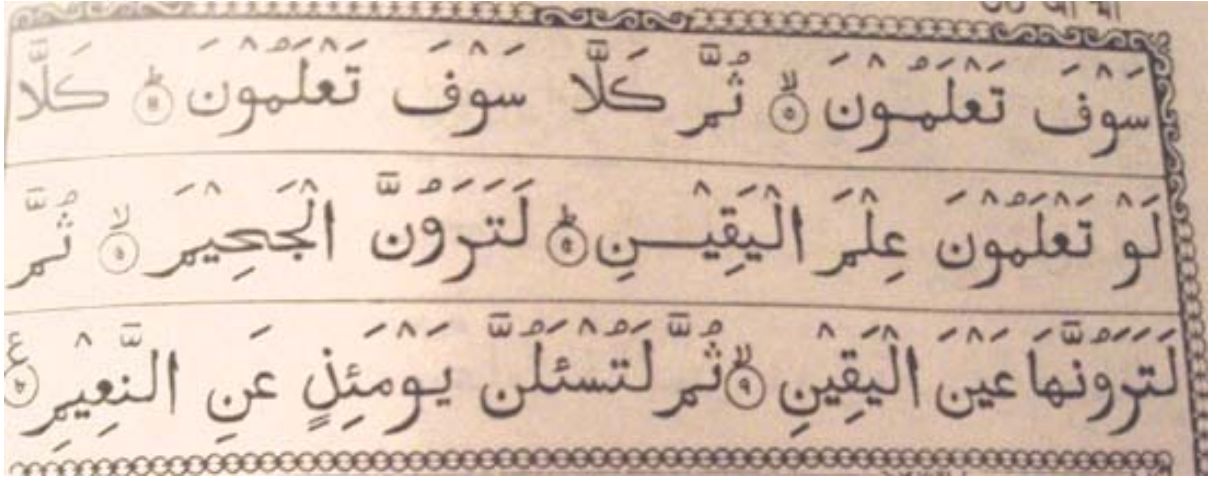 سَوْفَ تَعْلَمُوْنَ ۙ ثُمَّ كَلَّا سَوْفَ تَعْلَمُوْنَ ؕ كَلَّا
لَوْ تَعْلَمُوْنَ عِلْمَ الْيَقِيْنِ ؕ لَتَرَوُنَّ الْجَحِيْمَ ۙ ثُمَّ
لَتَرَوُنَّهَا عَيْنَ الْيَقِيْنِ ۙ ثُمَّ لَتُسْئَلُنَّ يَوْمَئِذٍ عَنِ النَّعِيْمِ ع